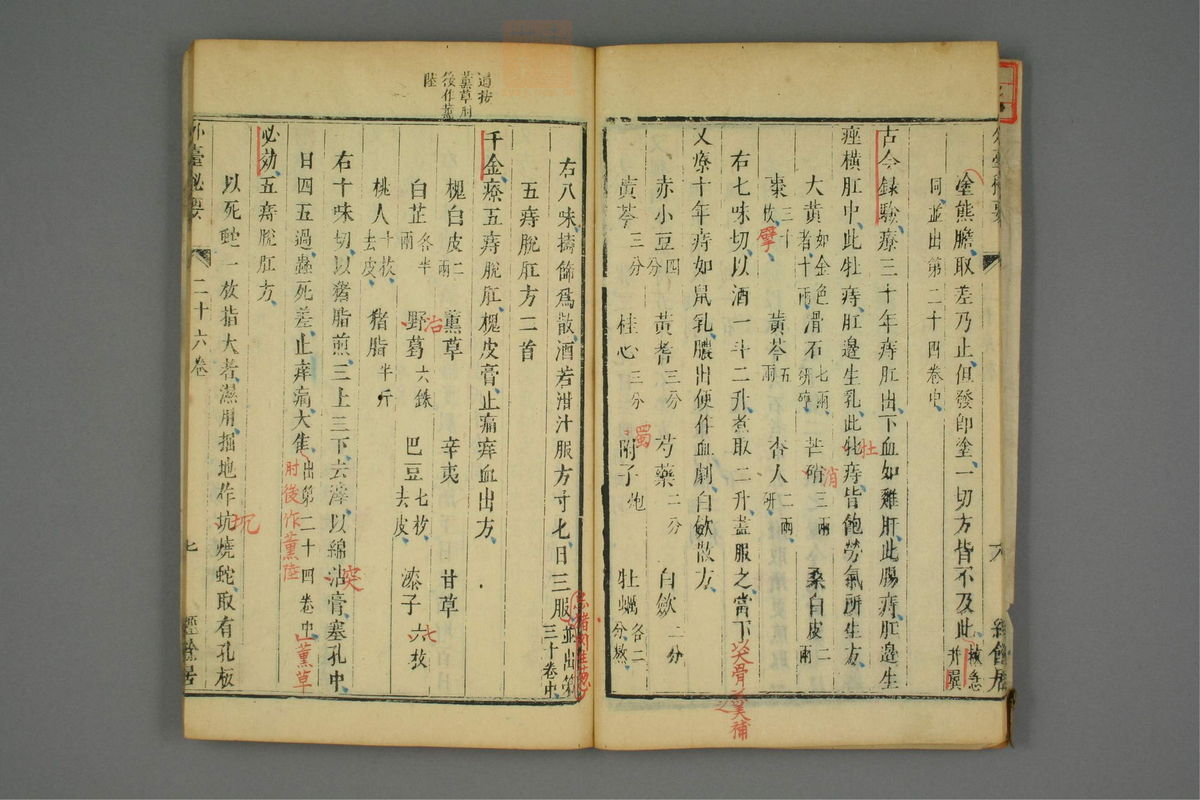 塗熊膽取差乃止但發即塗一切方皆不及此救急
同並出第二十四卷中
古今録驗療三十年痔肛出下血如雞肝此腸痔肛邊生
痤横肛中此牡痔肛邊生乳此牝痔皆飽勞氣所生方
牡
大黄如金色者十兩 滑石七兩研碎 芒硝三兩 桑白皮二兩
消
棗三十枚 黄芩五兩 杏人二兩研
擘
右七味切以酒一斗二升煮取二升盡服之當下
又療十年痔如鼠乳膿出便作血劇白歛散方
赤小豆四分 黄耆三分 芍藥二分 白歛二分
黄芩三分 桂心三分 附子炮 牡蠣各二分熬
右八味擣篩爲散酒若泔汁服方寸匕日三服並出第三十卷中
五痔脫肛方二首
千金療五痔脫肛槐皮膏止痛痒血出方
槐白皮二兩 薰草 辛夷 甘草
白芷各半兩 野葛六銖 巴豆七枚去皮 漆子六枚
七
桃人十枚去皮 猪脂半斤
右十味切以猪脂煎三上三下去滓以綿沾膏塞孔中
日四五過蟲死差止痒痛大隹出第二十四卷中
肘後作薰陸
薰草
必効五痔脫肛方
以死蛇一枚指大者濕用掘地作坑燒蛇取有孔板
坑
二十六卷
七